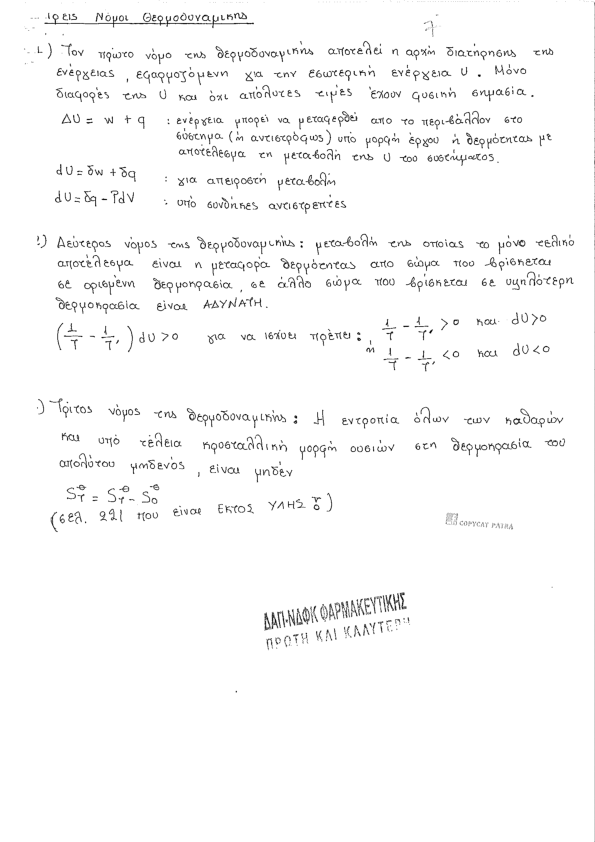 Τρεις Νόμοι Θερμοδυναμικής
7
1.) Τον πρώτο νόμο της θερμοδυναμικής αποτελεί η αρχή διατήρησης της
ενέργειας, εφαρμοζόμενη για την εσωτερική ενέργεια U. Μόνο
διαφορές της U και όχι απόλυτες τιμές έχουν φυσική σημασία.
ΔU = w + q : ενέργεια μπορεί να μεταφερθεί απο το περιβάλλον στο
σύστημα (ή αντιστρόφως) υπό μορφή έργου ή θερμότητας με
αποτέλεσμα τη μεταβολή της U του συστήματος.
dU = δw + δq : για απειροστή μεταβολή
dU = δq - PdV : υπό συνθήκες αντιστρεπτές
2) Δεύτερος νόμος της θερμοδυναμικής: μεταβολή της οποίας το μόνο τελικό
αποτέλεσμα είναι η μεταφορά θερμότητας απο σώμα που βρίσκεται
σε ορισμένη θερμοκρασία, σε άλλο σώμα που βρίσκεται σε υψηλότερη
θερμοκρασία είναι ΑΔΥΝΑΤΗ.
(1/T - 1/T') dU > 0 για να ισχύει πρέπει: 1/T - 1/T' > 0 και dU > 0
ή 1/T - 1/T' < 0 και dU < 0
) Τρίτος νόμος της θερμοδυναμικής: Η εντροπία όλων των καθαρών
και υπό τέλεια κρυσταλλική μορφή ουσιών στη θερμοκρασία του
απολύτου μηδενός, είναι μηδέν
S_T^⊖ = S_T^⊖ - S_0^⊖
(σελ. 221 που είναι ΕΚΤΟΣ ΥΛΗΣ)
COPYCAT PATRA
ΔΑΠ-ΝΔΦΚ ΦΑΡΜΑΚΕΥΤΙΚΗΣ
ΠΡΩΤΗ ΚΑΙ ΚΑΛΥΤΕΡΗ